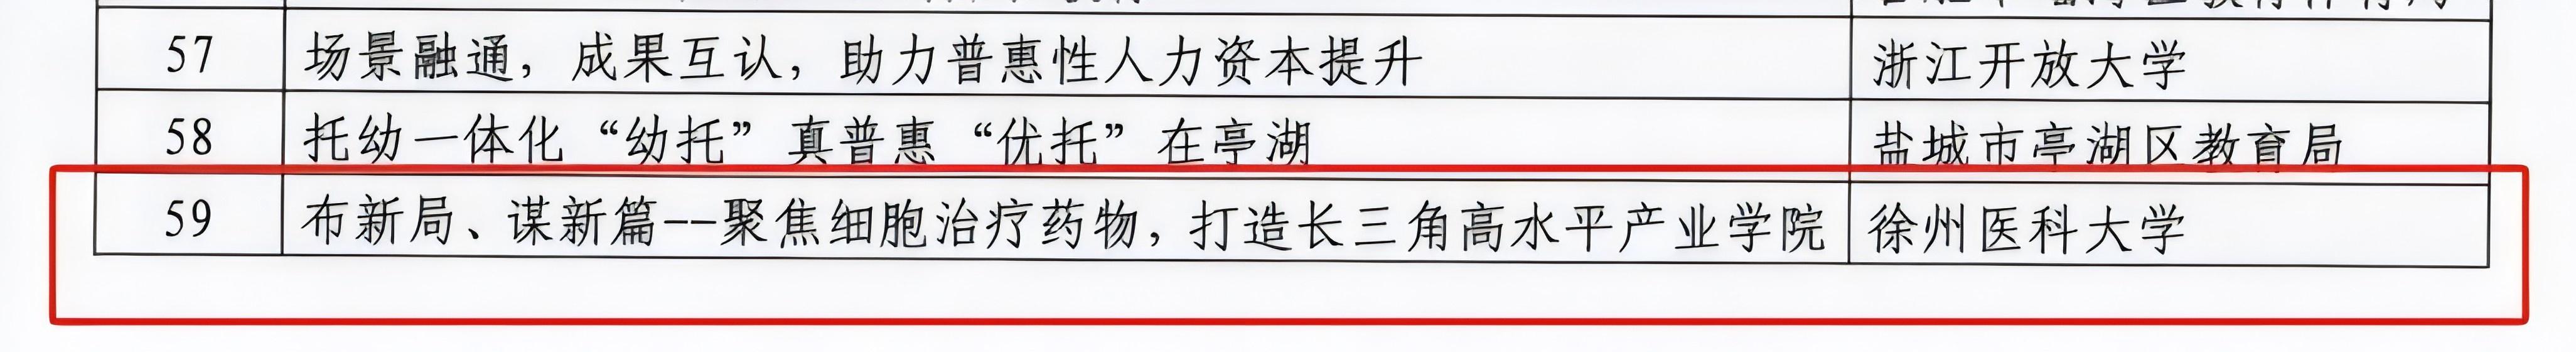 57 场景融通，成果互认，助力普惠性人力资本提升 浙江开放大学
58 托幼一体化“幼托”真普惠“优托”在亭湖 盐城市亭湖区教育局
59 布新局、谋新篇--聚焦细胞治疗药物，打造长三角高水平产业学院 徐州医科大学